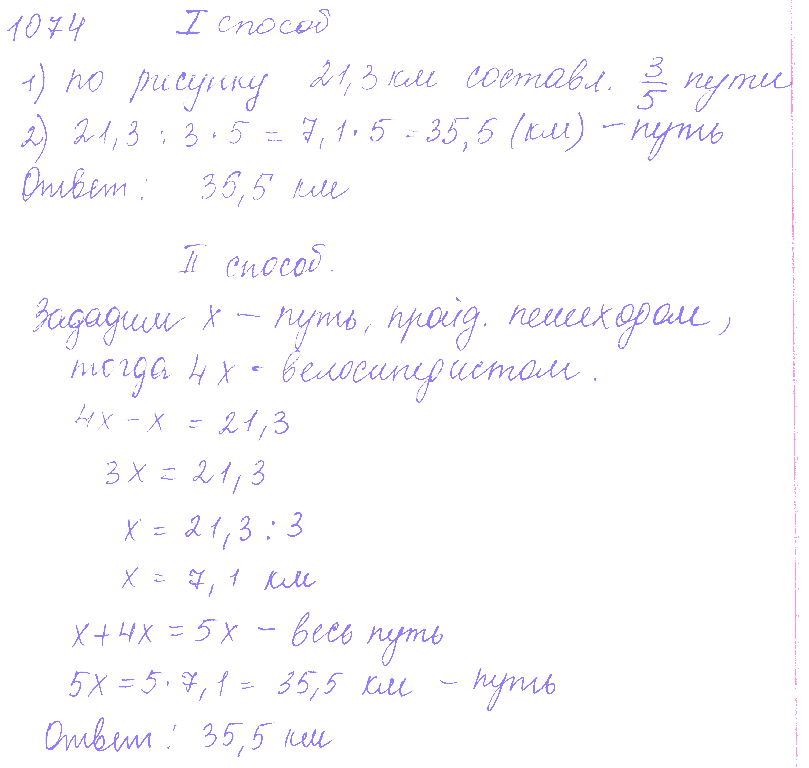 1074 I способ
1) по рисунку 21,3 км составл. 3/5 пути
2) 21,3 : 3 · 5 = 7,1 · 5 = 35,5 (км) – путь
Ответ: 35,5 км
II способ.
Зададим х – путь, пройд. пешеходом,
тогда 4х - велосипедистом.
4х – х = 21,3
3х = 21,3
х = 21,3 : 3
х = 7,1 км
х + 4х = 5х – весь путь
5х = 5 · 7,1 = 35,5 км – путь
Ответ: 35,5 км